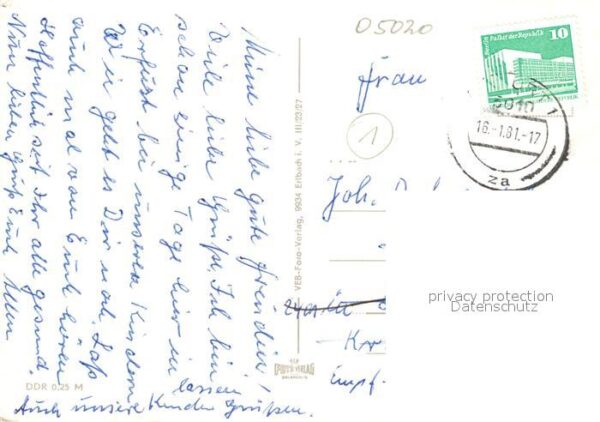 Meine liebe gute Freundin!
Viele liebe Grüße. Ich bin
schon einige Tage hier in
Erfurt bei unseren Kindern
Wie geht es Dir noch. Laß
auch mal von Euch hören
Hoffentlich seit Ihr alle gesund
Nun lieben Gruß Euch allen
lassen
Auch unsere Kinder grüßen.
DDR 0,25 M
VEB-Foto-Verlag, 9934 Erlbach i. V. III/23/27
05020
Frau
1
Joh.
Kr
Empf.
Palast der Republik
10
5010
16.-1.81.-17
za
privacy protection
Datenschutz